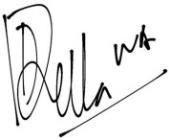 Della WA